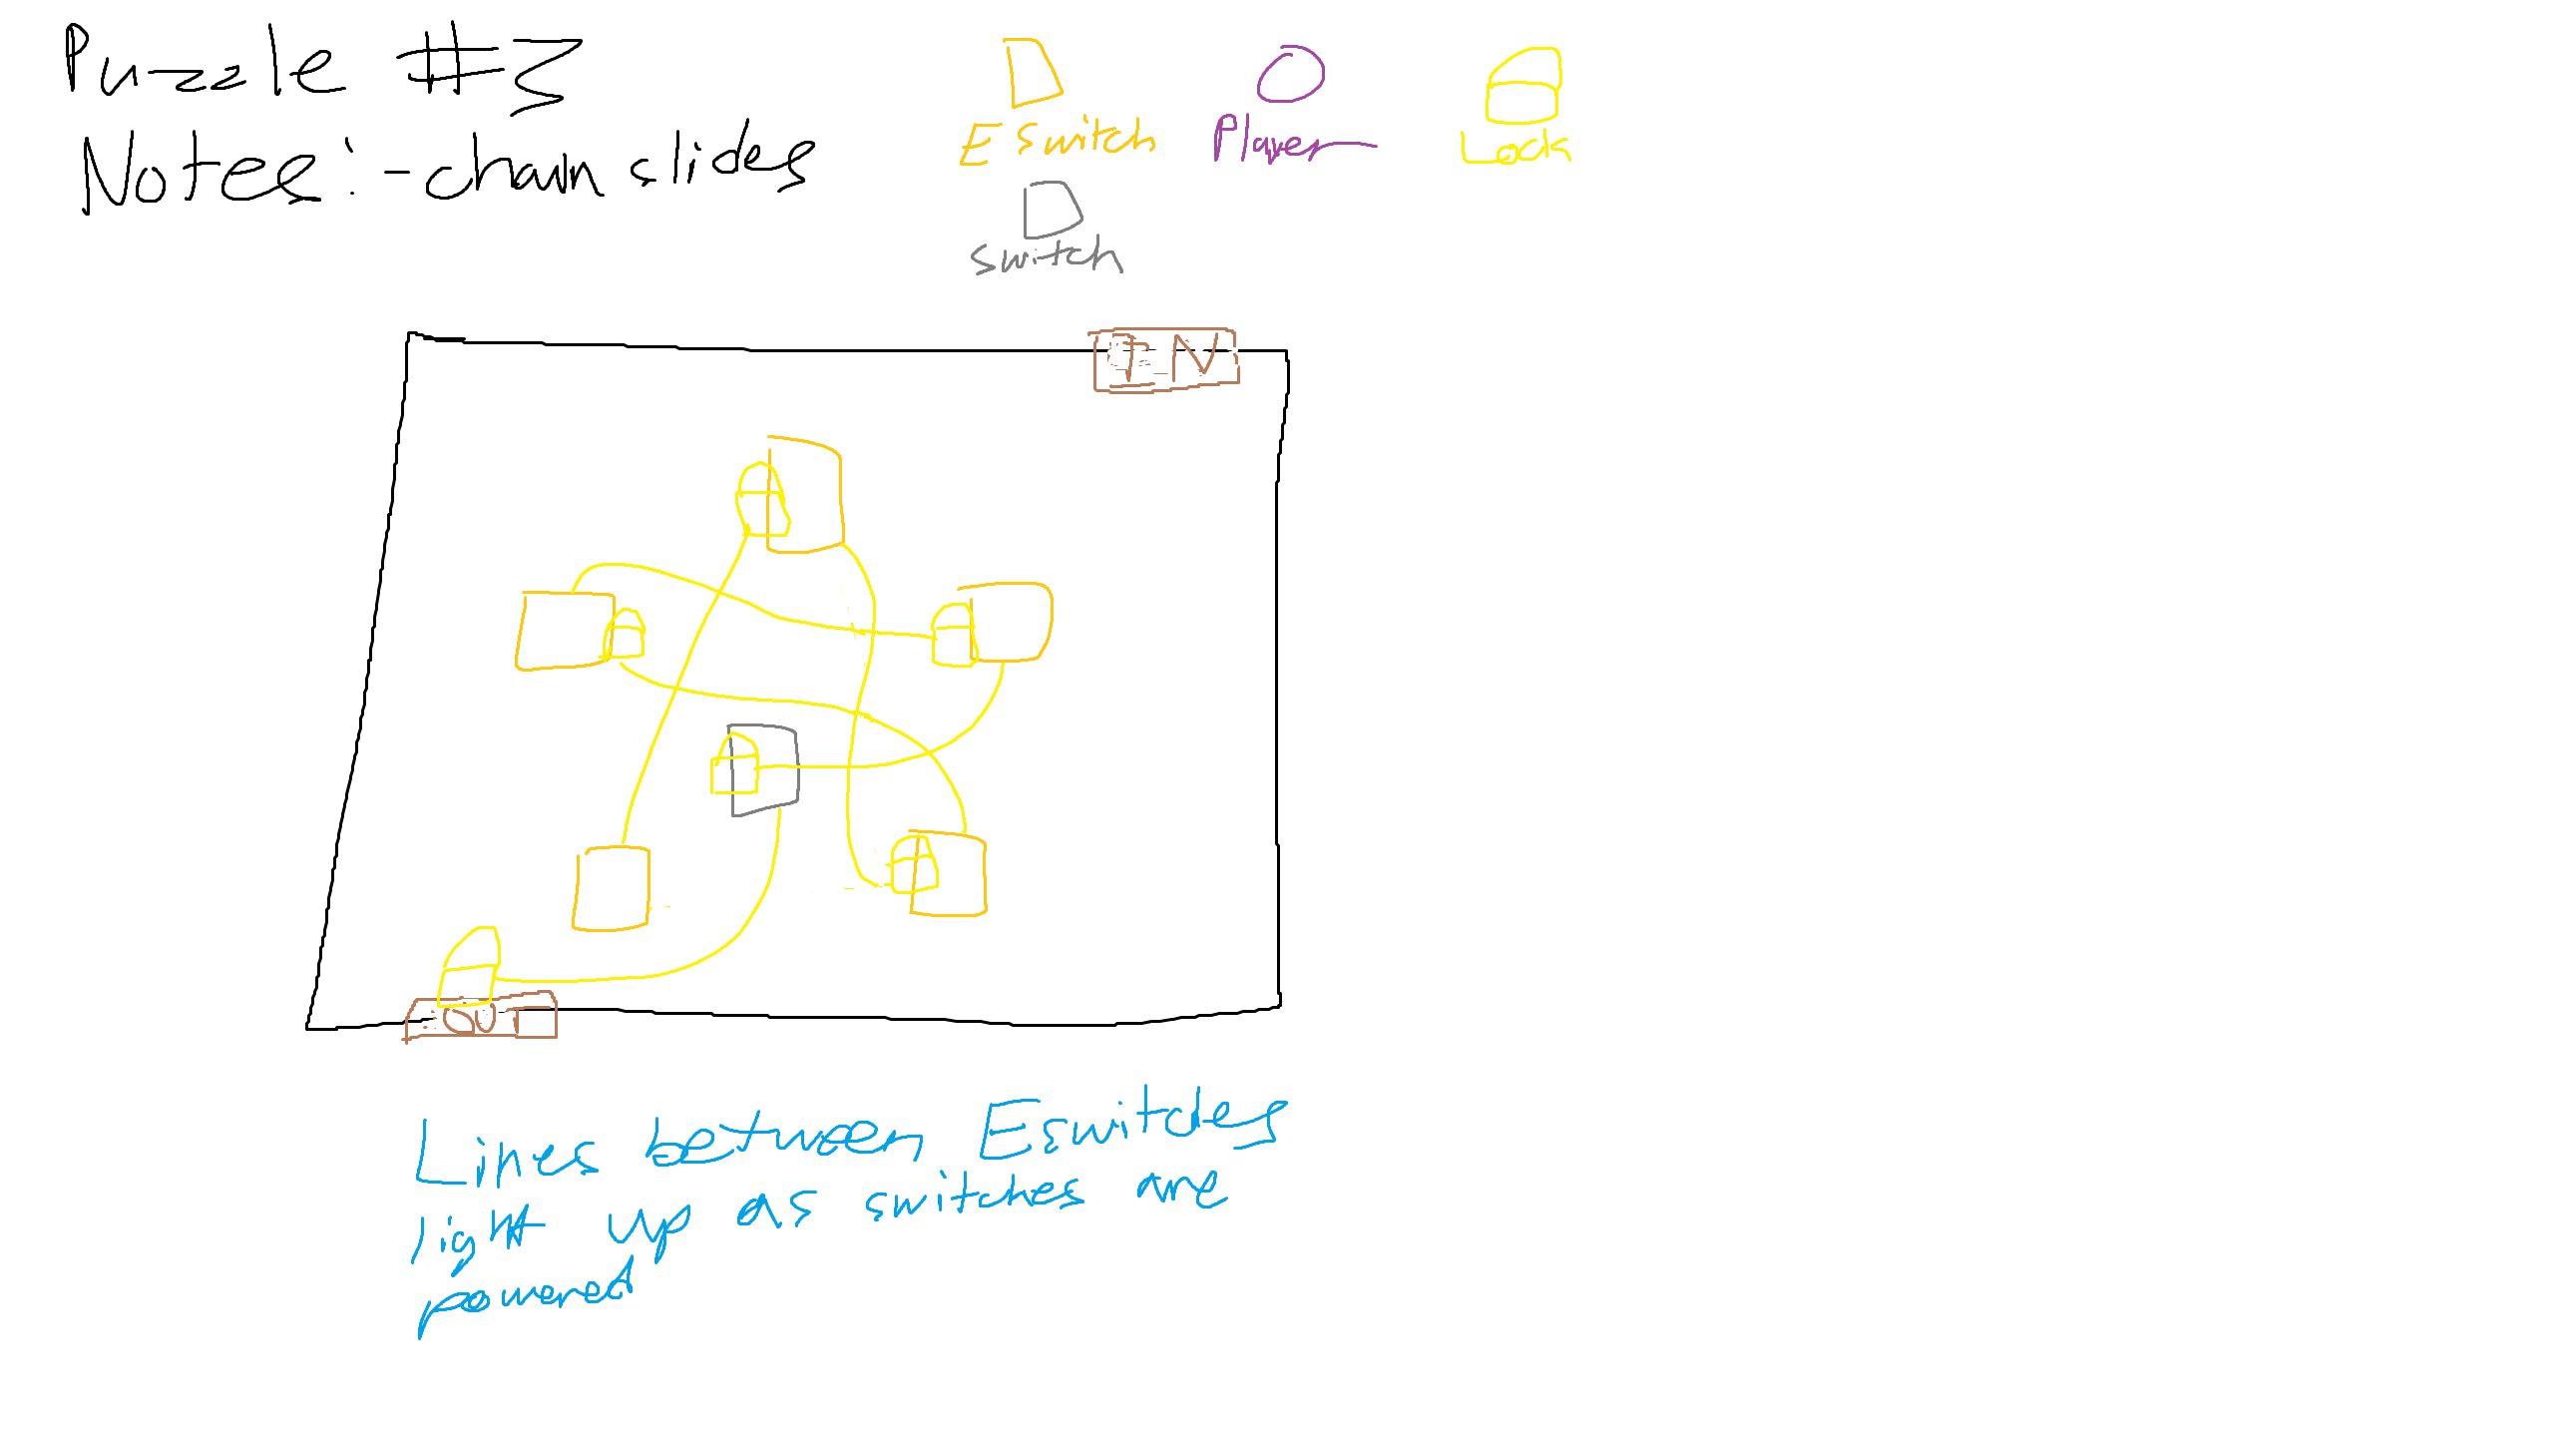 Puzzle #3
Notes: - chain slides
E Switch
Player
Lock
switch
IN
OUT
Lines between Eswitches
light up as switches are
powered